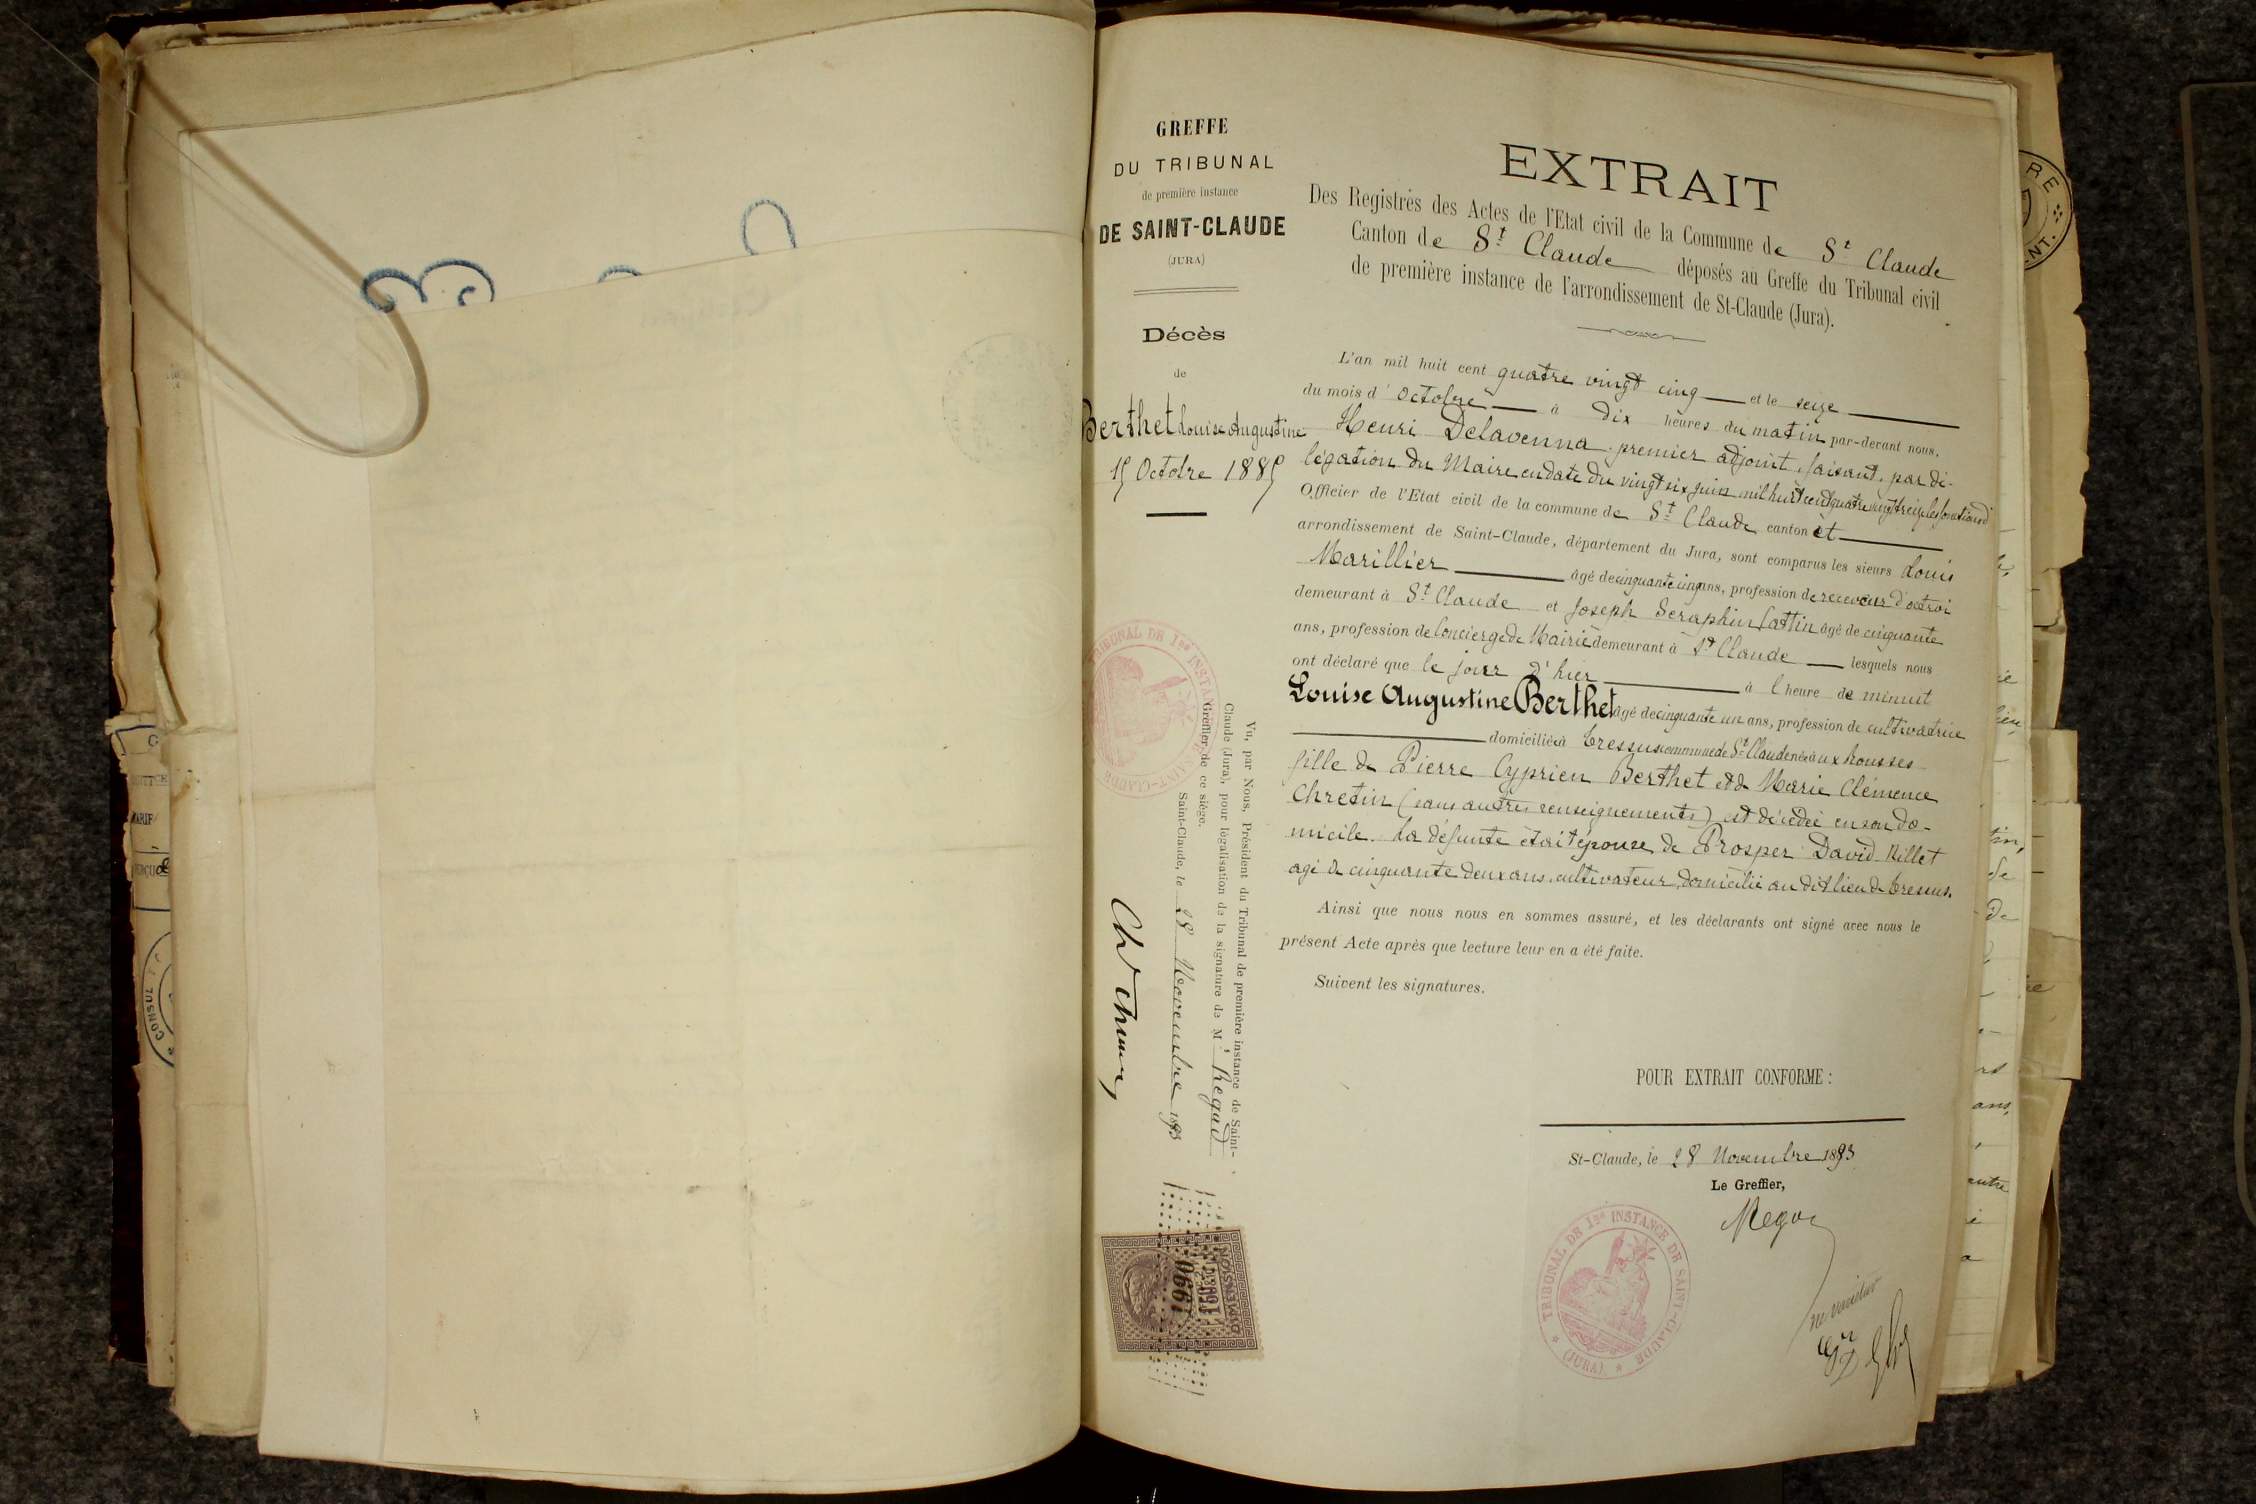 GREFFE
DU TRIBUNAL
de première instance
DE SAINT-CLAUDE
(JURA)
Décès
de
Berthet Louise Augustine
15 Octobre 1885
EXTRAIT
Des Registres des Actes de l'Etat civil de la Commune de St Claude
Canton de St Claude déposés au Greffe du Tribunal civil
de première instance de l'arrondissement de St-Claude (Jura).
L'an mil huit cent quatre vingt cinq et le seize
du mois d'octobre à dix heures du matin par-devant nous,
Henri Delavenna premier adjoint, faisant, par dé-
légation du Maire en date du vingt six juin mil huit cent quatre vingt cinq les fonctions d'
Officier de l'Etat civil de la commune de St Claude canton et
arrondissement de Saint-Claude, département du Jura, sont comparus les sieurs Louis
Marillier âgé de cinquante cinq ans, profession de receveur d'octroi
demeurant à St Claude et Joseph Seraphin Cattin âgé de cinquante
ans, profession de Concierge de Mairie demeurant à St Claude lesquels nous
ont déclaré que le jour d'hier à l'heure de minuit
Louise Augustine Berthet âgé de cinquante un ans, profession de cultivatrice
domiciliée à Cressus commune de St Claude née aux Rousses
fille de Pierre Cyprien Berthet et de Marie Clémence
Chretin (sans autres renseignements) est décédée en son do-
micile. La défunte était épouse de Prosper David Millet
agé de cinquante deux ans, cultivateur, domicilié au dit lieu de Cressus.
Ainsi que nous nous en sommes assuré, et les déclarants ont signé avec nous le
présent Acte après que lecture leur en a été faite.
Suivent les signatures.
POUR EXTRAIT CONFORME :
St-Claude, le 28 Novembre 1893
Le Greffier,
TRIBUNAL DE 1re INSTANCE DE SAINT-CLAUDE
(JURA)
Vu, par Nous, Président du Tribunal de première instance de Saint-
Claude (Jura), pour légalisation de la signature de Mr Regad
Greffier de ce siège.
Saint-Claude, le 28 Novembre 1893
TRIBUNAL DE 1re INSTANCE DE SAINT-CLAUDE
DIMENSION